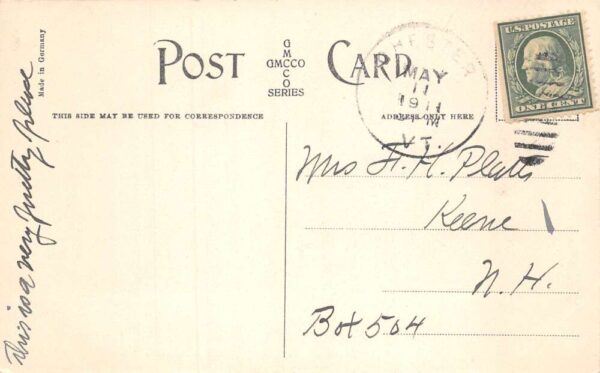 Made in Germany
POST CARD
GMCCO
GMCCO
SERIES
THIS SIDE MAY BE USED FOR CORRESPONDENCE
ADDRESS ONLY HERE
CHESTER
MAY
11
1911
M
VT.
U.S. POSTAGE
ONE CENT
This is a very pretty place
Mrs F. H. Platts
Keene
N. H.
Box 504